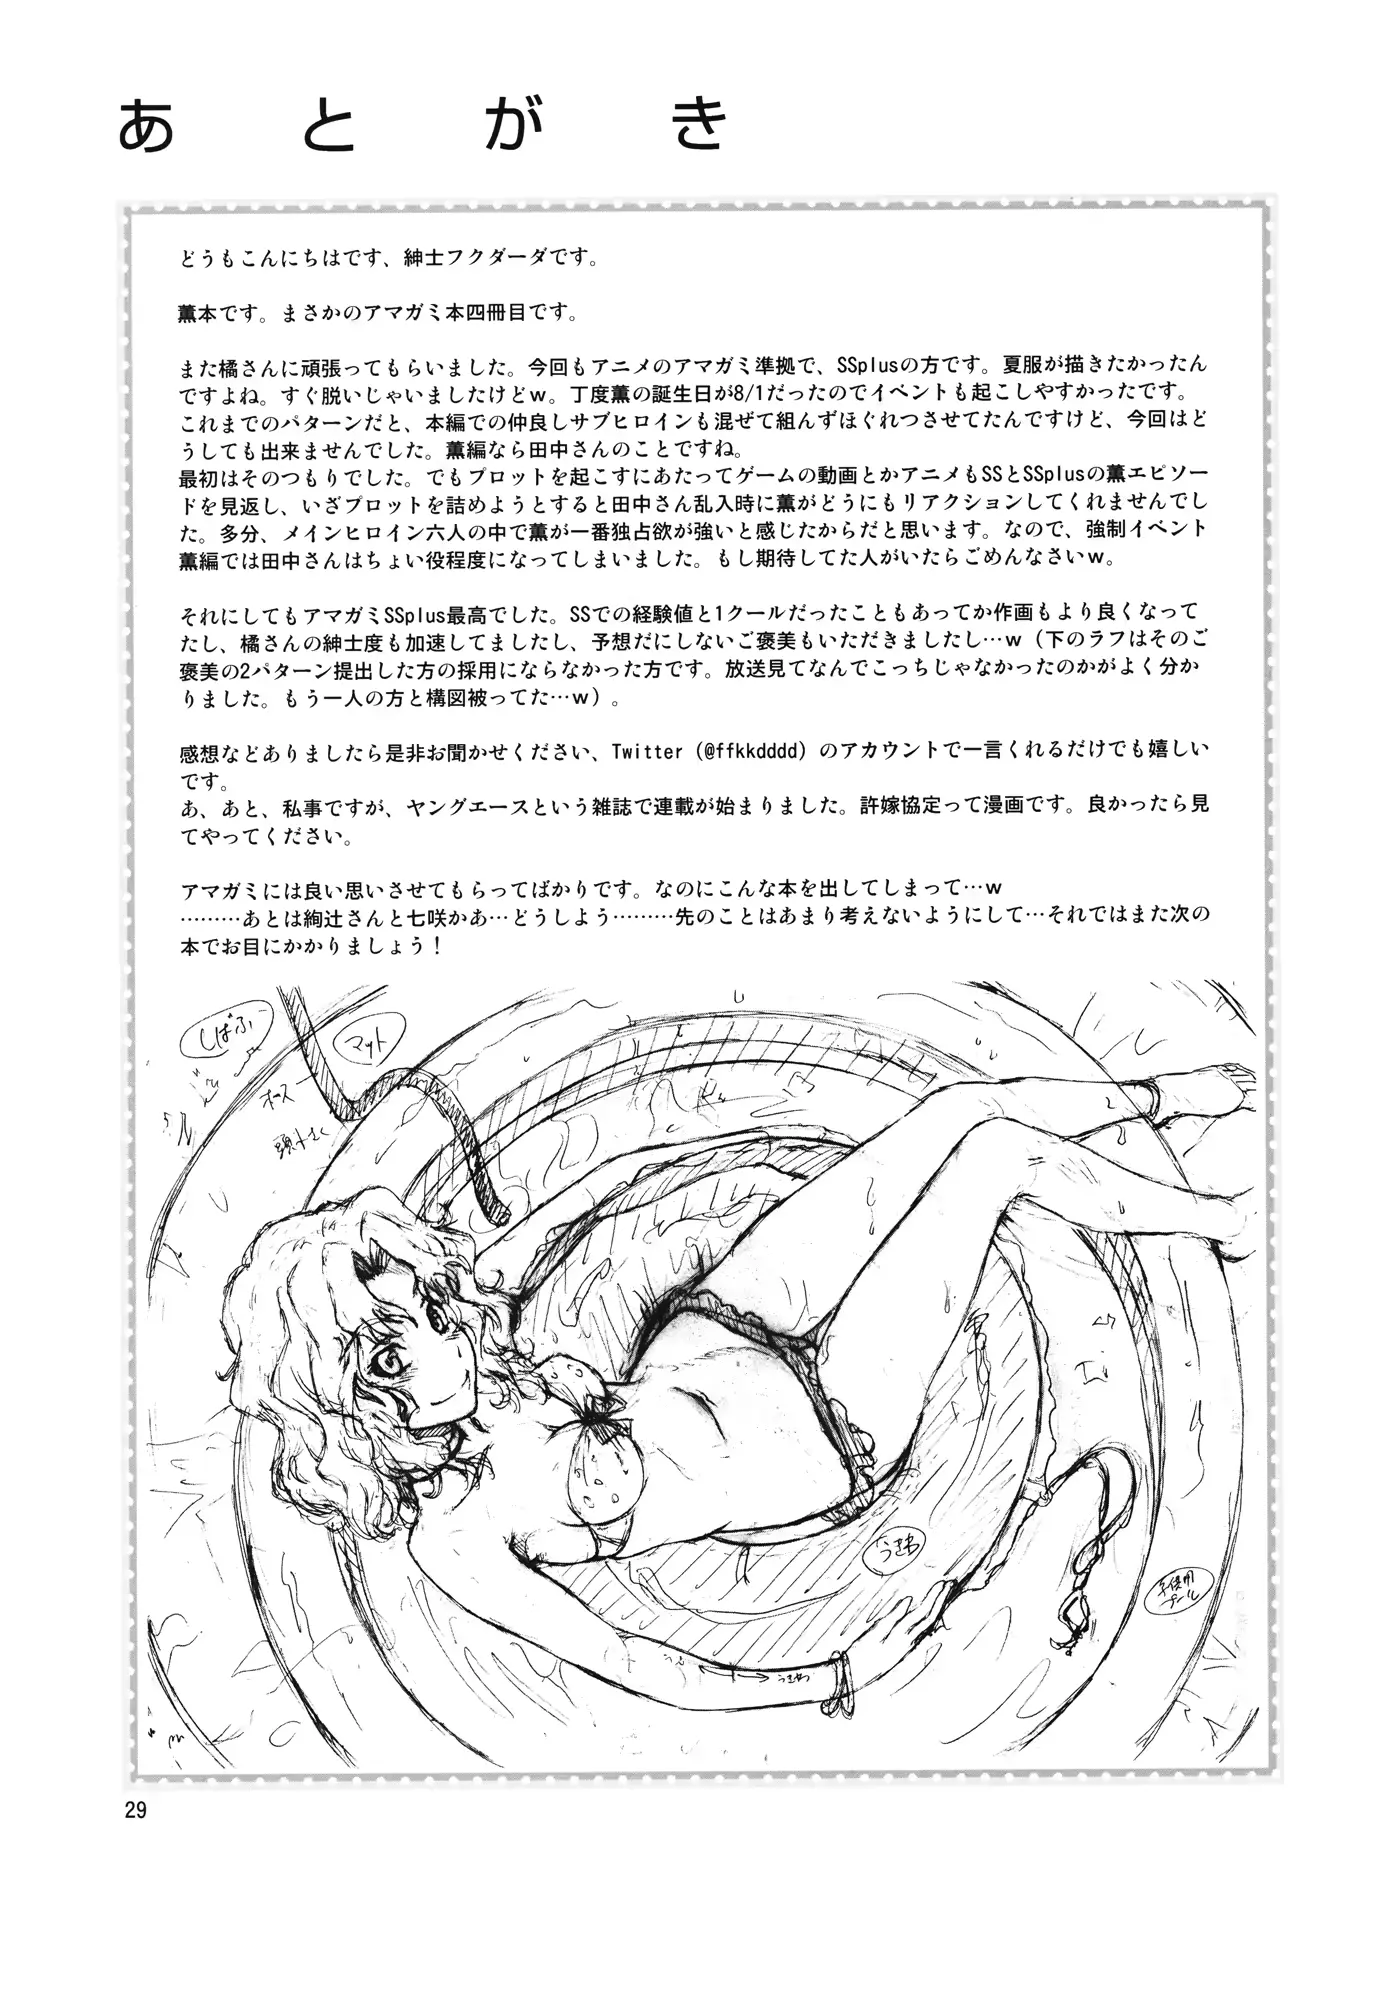 あとがき
どうもこんにちはです、紳士フクダーダです。
薫本です。まさかのアマガミ本四冊目です。
また橘さんに頑張ってもらいました。今回もアニメのアマガミ準拠で、SSplusの方です。夏服が描きたかったん
ですよね。すぐ脱いじゃいましたけどｗ。丁度薫の誕生日が8/1だったのでイベントも起こしやすかったです。
これまでのパターンだと、本編での仲良しサブヒロインも混ぜて組んずほぐれつさせてたんですけど、今回はど
うしても出来ませんでした。薫編なら田中さんのことですね。
最初はそのつもりでした。でもプロットを起こすにあたってゲームの動画とかアニメもSSとSSplusの薫エピソー
ドを見返し、いざプロットを詰めようとすると田中さん乱入時に薫がどうにもリアクションしてくれませんでし
た。多分、メインヒロイン六人の中で薫が一番独占欲が強いと感じたからだと思います。なので、強制イベント
薫編では田中さんはちょい役程度になってしまいました。もし期待してた人がいたらごめんなさいｗ。
それにしてもアマガミSSplus最高でした。SSでの経験値と1クールだったこともあってか作画もより良くなって
たし、橘さんの紳士度も加速してましたし、予想だにしないご褒美もいただきましたし…ｗ（下のラフはそのご
褒美の2パターン提出した方の採用にならなかった方です。放送見てなんでこっちじゃなかったのかがよく分か
りました。もう一人の方と構図被ってた…ｗ）。
感想などありましたら是非お聞かせください、Twitter（@ffkkdddd）のアカウントで一言くれるだけでも嬉しい
です。
あ、あと、私事ですが、ヤングエースという雑誌で連載が始まりました。許嫁協定って漫画です。良かったら見
てやってください。
アマガミには良い思いさせてもらってばかりです。なのにこんな本を出してしまって…ｗ
………あとは絢辻さんと七咲かあ…どうしよう………先のことはあまり考えないようにして…それではまた次の
本でお目にかかりましょう！
しばふ
マット
ホース
うきわ
子供用
プール
うきわ
29